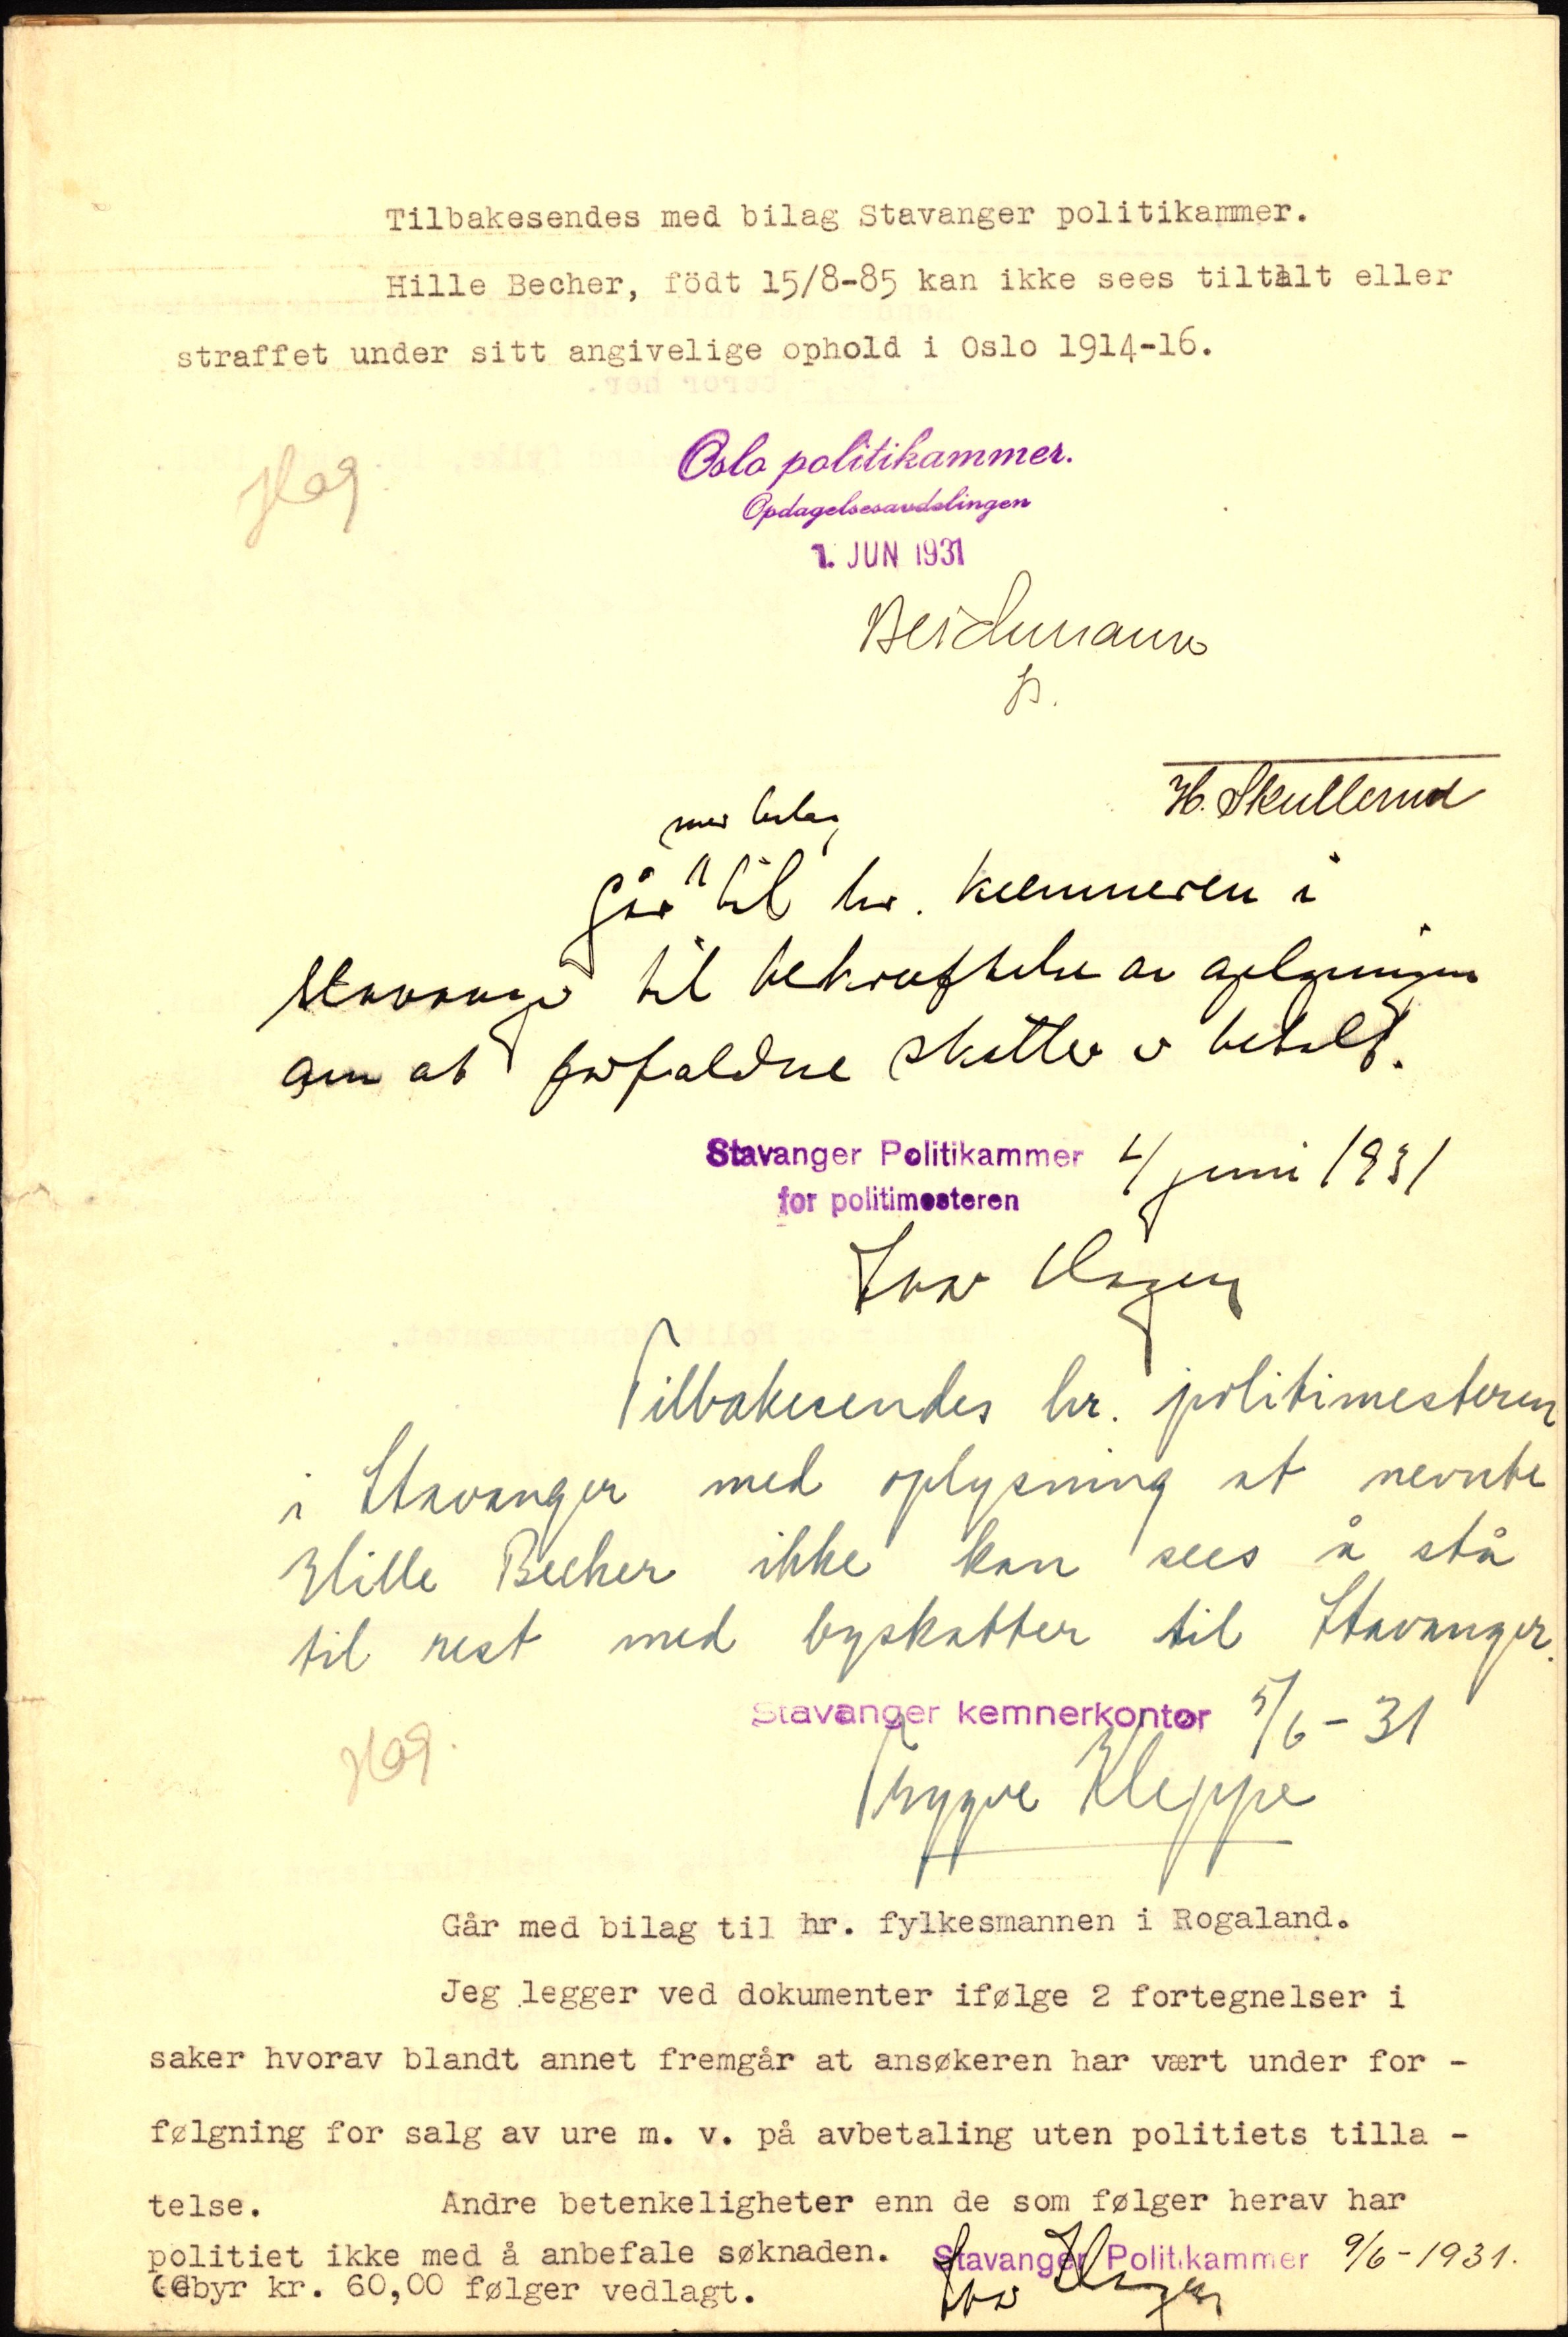 Tilbakesendes med bilag Stavanger politikammer.
Hille Becher, födt 15/8-85 kan ikke sees tiltalt eller
straffet under sitt angivelige ophold i Oslo 1914-16.
Oslo politikammer.
Opdagelsesavdelingen
1. JUN 1931
H. Skullerud
med bilag
Går til hr. kemneren i
Stavanger til bekreftelse av oplysningen
om at forfaldne skatter er betalt.
Stavanger Politikammer 4/ juni 1931
for politimesteren
Tilbakesendes hr. politimesteren
i Stavanger med oplysning at nevnte
Hille Becher ikke kan sees å stå
til rest med byskatter til Stavanger.
Stavanger kemnerkontor 5/6-31
Trygve Kleppe
Går med bilag til hr. fylkesmannen i Rogaland.
Jeg legger ved dokumenter ifølge 2 fortegnelser i
saker hvorav blandt annet fremgår at ansøkeren har vært under for -
følgning for salg av ure m. v. på avbetaling uten politiets tilla -
telse. Andre betenkeligheter enn de som følger herav har
politiet ikke med å anbefale søknaden. Stavanger Politikammer 9/6-1931.
Gebyr kr. 60,00 følger vedlagt.